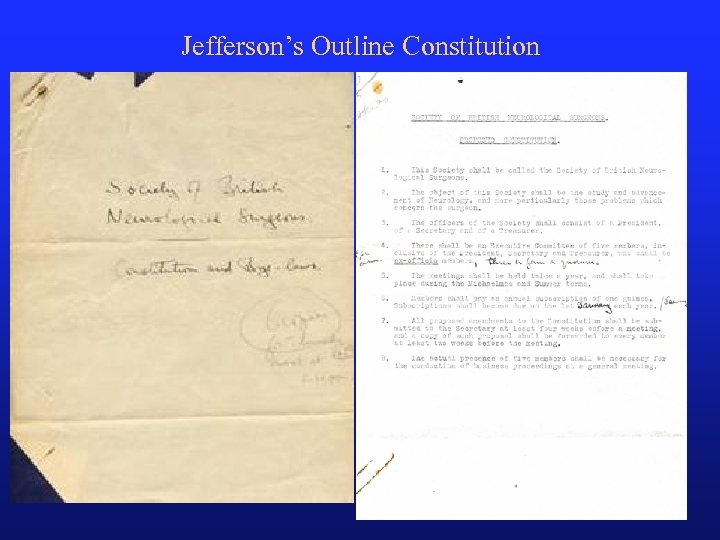 Jefferson's Outline Constitution
Society of British
Neurological Surgeons.
Constitution and Bye-laws
SOCIETY OF BRITISH NEUROLOGICAL SURGEONS.
PROPOSED CONSTITUTION.
1. This Society shall be called the Society of British Neuro-
logical Surgeons.
2. The object of this Society shall be the study and advance-
ment of Neurology, and more particularly those problems which
concern the surgeon.
3. The officers of the Society shall consist of a President,
of a Secretary and of a Treasurer.
4. There shall be an Executive Committee of five members, in-
clusive of the President, Secretary and Treasurer, who shall be
ex-officio members, three to form a quorum.
5. The meetings shall be held twice a year, and shall take
place during the Michaelmas and Summer terms.
6. Members shall pay an annual subscription of one guinea.
Subscriptions shall become due on the 1st January each year.
7. All proposed amendments to the Constitution shall be sub-
mitted to the Secretary at least four weeks before a meeting,
and a copy of such proposal shall be forwarded to every member
at least two weeks before the meeting.
8. The actual presence of five members shall be necessary for
the conduction of business proceedings at a general meeting.